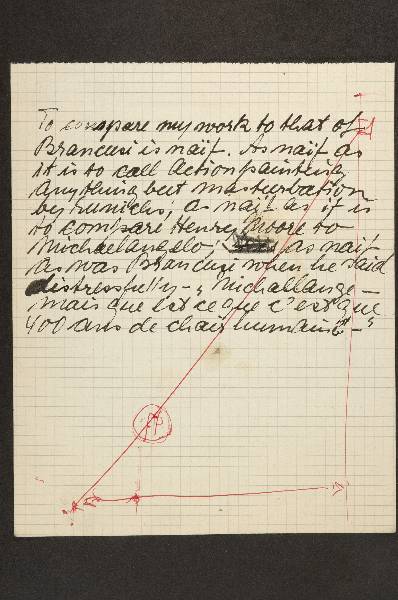 To compare my work to that of
Brancusi is naïf. As naïf as
it is to call Action painting
anything but masturbation
by eunichs; as naïf as it is
to compare Henry Moore to
Michaelangelo; as naïf
as was Brancusi when he said
distressfully - "Michallange -
mais que est ce que c'est que
400 ans de chair humaine -"